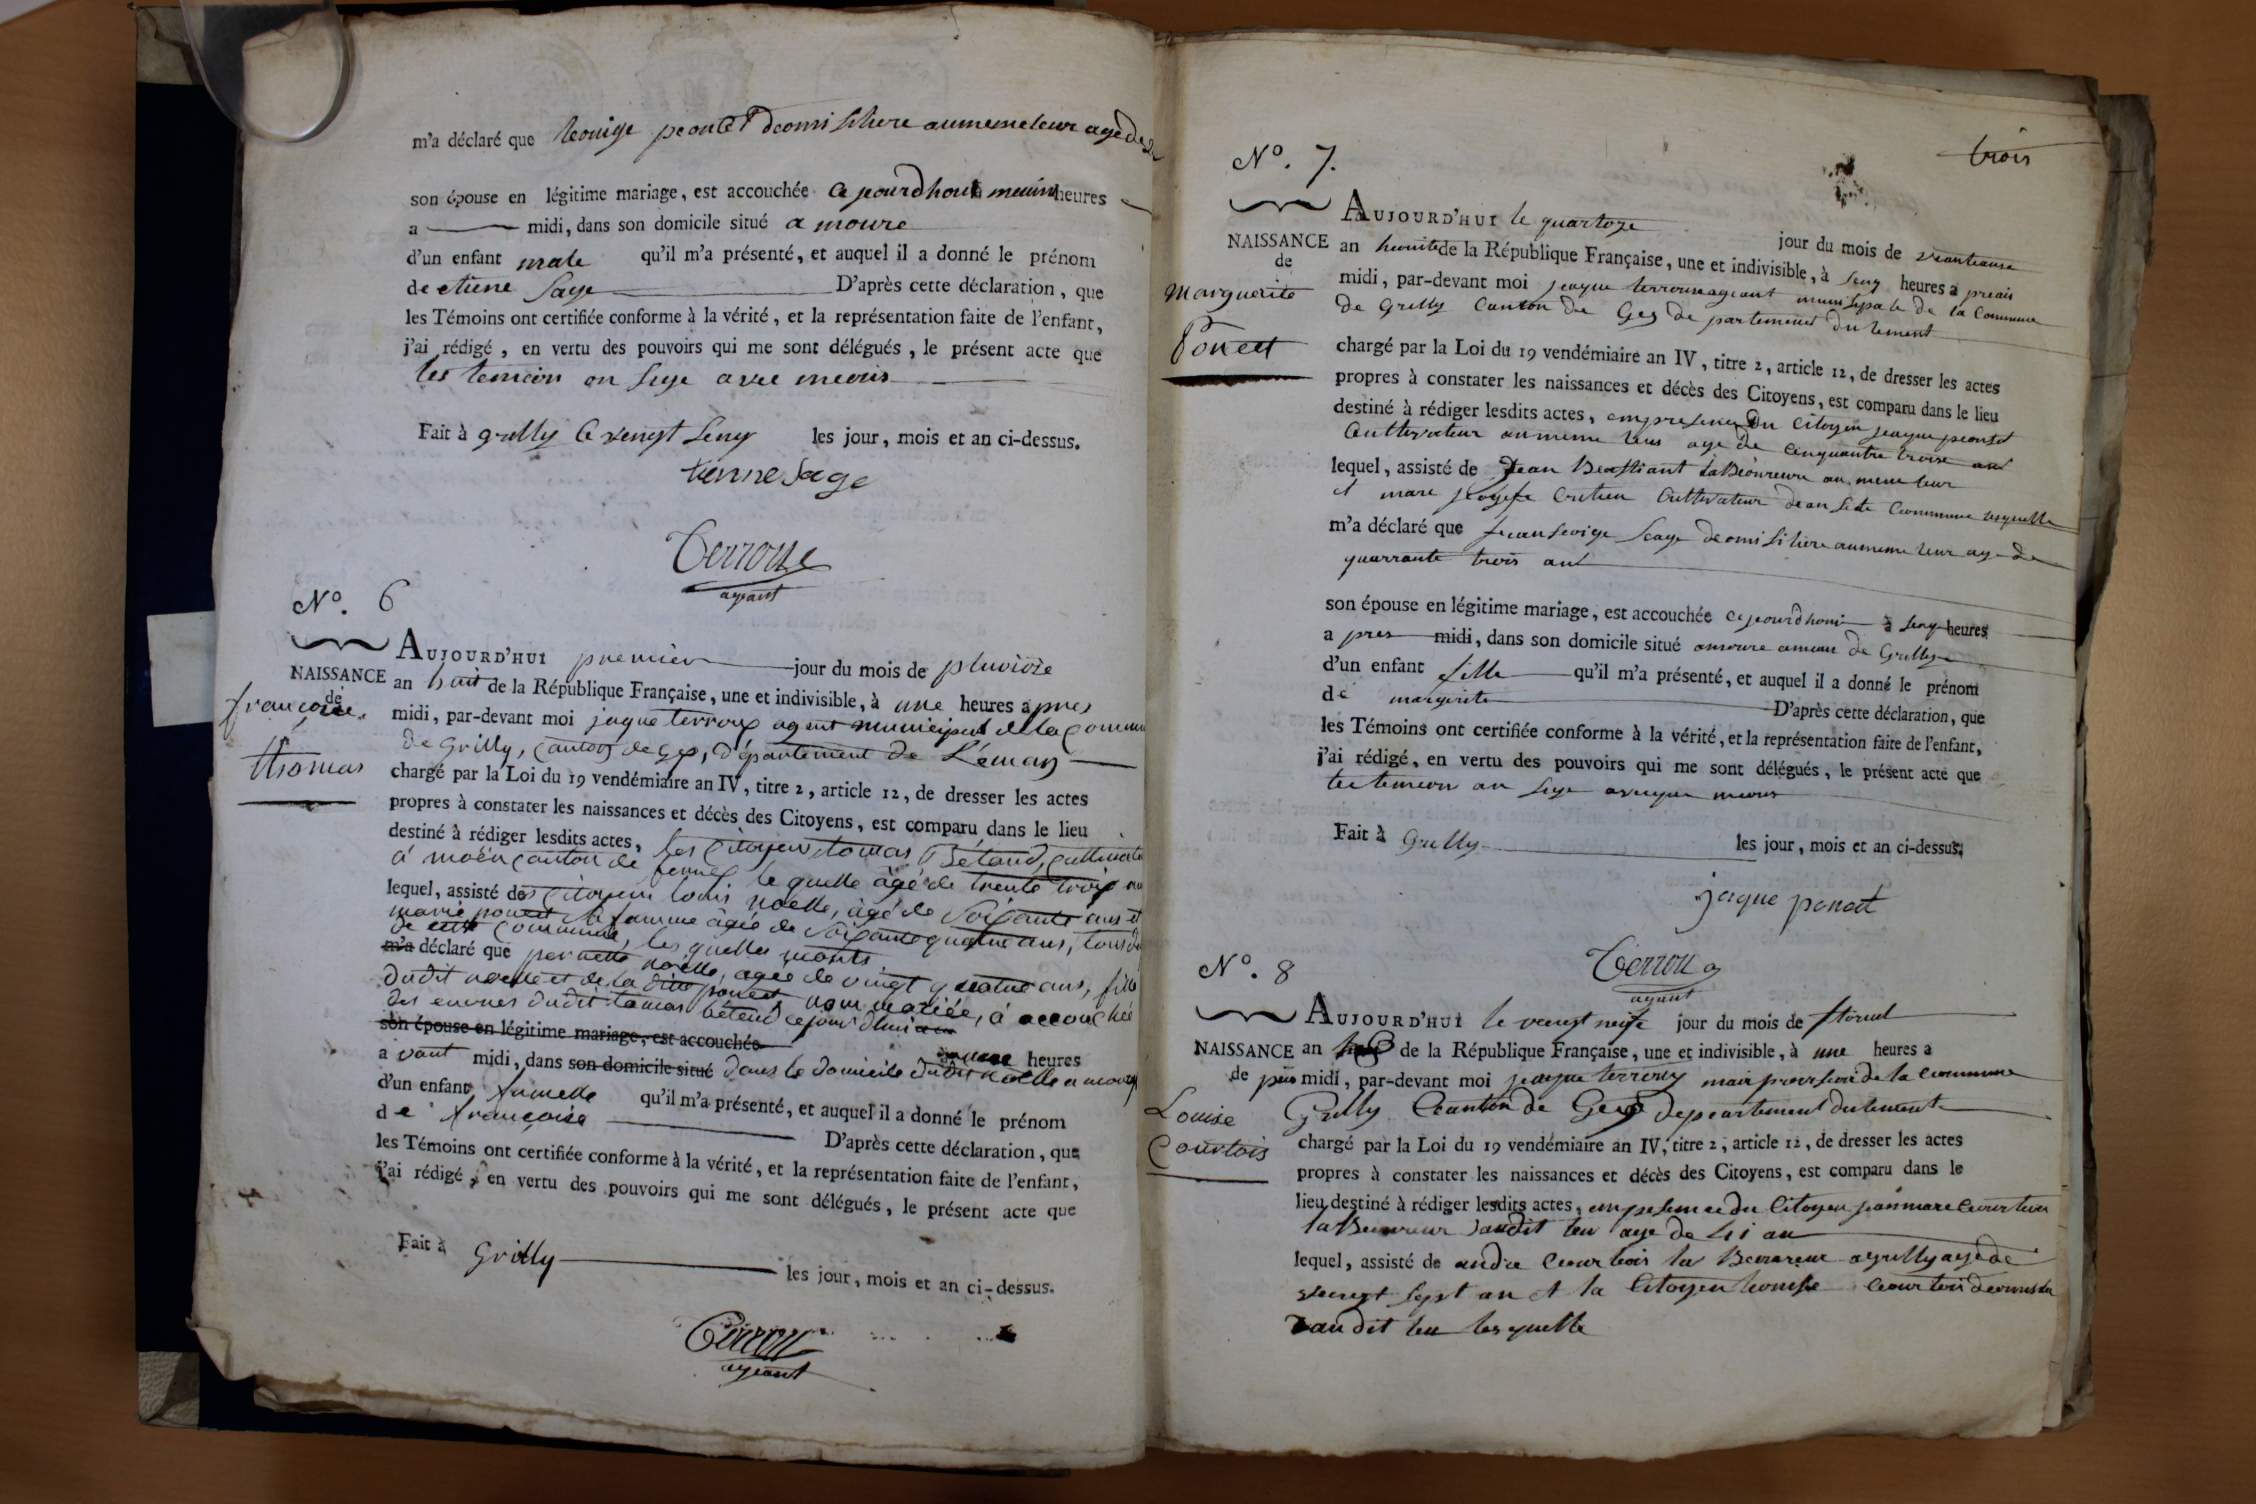 m'a déclaré que leouise peontet deomisiliere aumeme leur age de
son épouse en légitime mariage, est accouchée ce jourdhoui à meuint heures
a midi, dans son domicile situé a moure
d'un enfant male qu'il m'a présenté, et auquel il a donné le prénom
de etiene Sage D'après cette déclaration, que
les Témoins ont certifiée conforme à la vérité, et la représentation faite de l'enfant,
j'ai rédigé, en vertu des pouvoirs qui me sont délégués, le présent acte que
les temoin on sige avec meois
Fait à grilly le vengt seny les jour, mois et an ci-dessus.
tienne Sage
Terroux
ageant
N°. 6
NAISSANCE
de
françoise
thomas
AUJOURD'HUI premier jour du mois de pluviôse
an huit de la République Française, une et indivisible, à une heures apres
midi, par-devant moi jaque terroux agent municipal de la commune
de Grilly, canton de Gex, département de Léman
chargé par la Loi du 19 vendémiaire an IV, titre 2, article 12, de dresser les actes
propres à constater les naissances et décès des Citoyens, est comparu dans le lieu
destiné à rédiger lesdits actes, les Citoyen tomas Bétend, cultivateur
à moën canton de fernex le quelle âgé de trente trois ans
lequel, assisté des citoyen louis noelle, âgé de Soixante ans et
marie ponect sa famme âgée de Soixante quatre ans, tous de
de cette commune, les quelles monts
m'a déclaré que pernette noelle, agée de vingt quatre ans, fille
dudit noelle et de la ditte ponect, nom mariée, à accouchée
des euvres dudit tomas bétend cejour d'hui
son épouse en légitime mariage, est accouchée
a une heures
a vant midi, dans son domicile situé dans le domicile dudit noelle a mourex
d'un enfant fumelle qu'il m'a présenté, et auquel il a donné le prénom
de françoise D'après cette déclaration, que
les Témoins ont certifiée conforme à la vérité, et la représentation faite de l'enfant,
j'ai rédigé, en vertu des pouvoirs qui me sont délégués, le présent acte que
Fait à Grilly les jour, mois et an ci-dessus.
Terroux
ageant
trois
N°. 7.
NAISSANCE
de
Marguerite
Ponect
AUJOURD'HUI le quartoze jour du mois de veanteause
an heuite de la République Française, une et indivisible, à seng heures a preais
midi, par-devant moi jeaque terrou ageant munisipale de la Commune
de Grilly Canton de Gex departement du lement
chargé par la Loi du 19 vendémiaire an IV, titre 2, article 12, de dresser les actes
propres à constater les naissances et décès des Citoyens, est comparu dans le lieu
destiné à rédiger lesdits actes, empresence du Citoyen jeaque peontet
Cultivateur aumeme leus age de cenquantre troise ans
lequel, assisté de Jean Beastiant laBeoureure au meme leur
et mare josefe Cretien Cultivateur deansete Commune lequelle
m'a déclaré que franseoise Seage deomisiliere aumeme leur age de
quarrante trois ant
son épouse en légitime mariage, est accouchée cejourdhoui à seng heures
a pres midi, dans son domicile situé amoure amean de Grilly
d'un enfant fille qu'il m'a présenté, et auquel il a donné le prénom
de margerite D'après cette déclaration, que
les Témoins ont certifiée conforme à la vérité, et la représentation faite de l'enfant,
j'ai rédigé, en vertu des pouvoirs qui me sont délégués, le présent acte que
les temeon an sige avecque meous
Fait à Grilly les jour, mois et an ci-dessus.
jaque ponect
Terroux
ageant
N°. 8
NAISSANCE
de
Louise
Courtois
AUJOURD'HUI le vengt neufe jour du mois de floreal
an huit de la République Française, une et indivisible, à une heures a
pres midi, par-devant moi jeaque terroux mair provisoire de la Commune
Grilly Canton de Gex departement du lement
chargé par la Loi du 19 vendémiaire an IV, titre 2, article 12, de dresser les actes
propres à constater les naissances et décès des Citoyens, est comparu dans le
lieu destiné à rédiger lesdits actes, empresence du Citoyen jeanmare Courtois
laBeureur audit leu age de 41 an
lequel, assisté de andre Ceourtois la Beureure a grilly age de
veengt sept an et la Citoyen leouise Ceourtois deomisilie
audit leu lesquelle